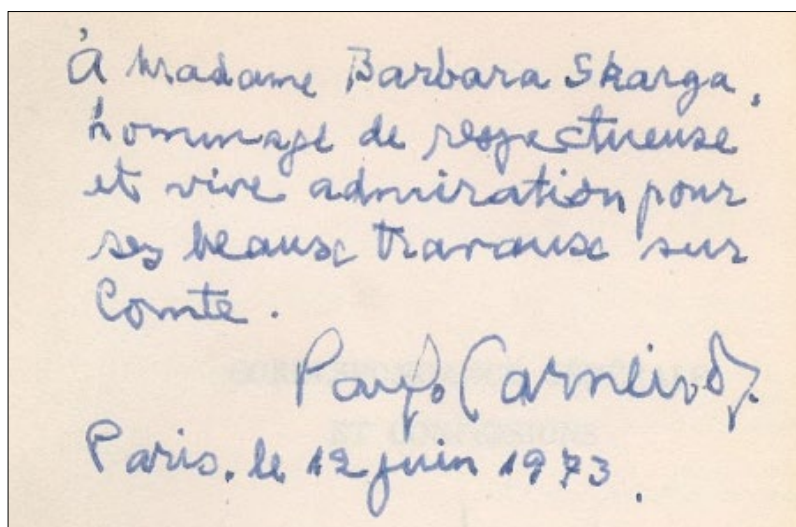 À Madame Barbara Skarga,
hommage de respectueuse
et vive admiration pour
ses beaux travaux sur
Comte.
Paulo Carneiro
Paris, le 12 juin 1973.
ET CONFESSIONS